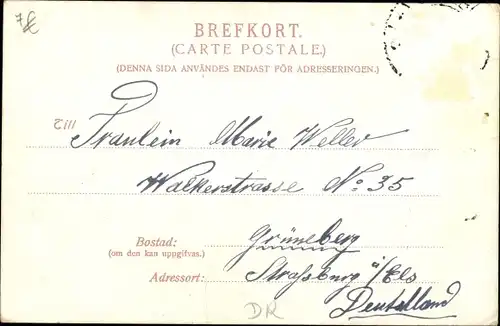 7€
BREFKORT.
(CARTE POSTALE.)
(DENNA SIDA ANVÄNDES ENDAST FÖR ADRESSERINGEN.)
1112
Fraulein Marie Weller
Walkerstrasse No 35
Bostad: Grüneberg
(om den kan uppgifvas.)
Adressort: Straßburg i/Els
Deutschland
DR